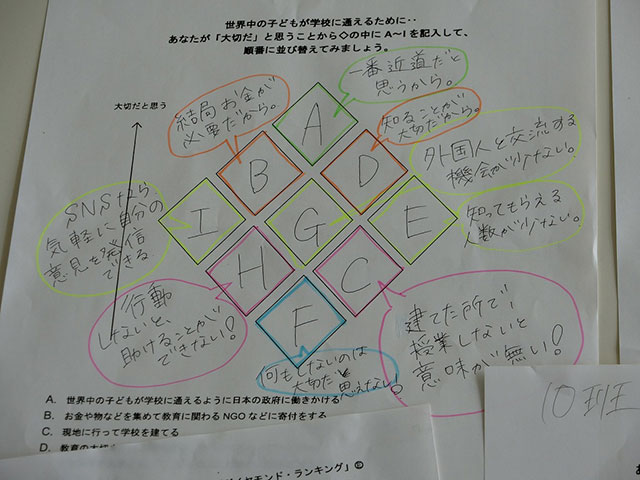 世界中の子どもが学校に通えるために‥
あなたが「大切だ」と思うことから◇の中にA～Iを記入して、
順番に並び替えてみましょう。
大切だと思う
一番近道だと
思うから。
結局お金が
必要だから。
知ることが
大切だから。
外国人と交流する
機会が少ない。
SNSなら
気軽に自分の
意見を発信
できる
知ってもらえる
人数が少ない。
A
B
D
I
G
E
H
C
F
行動
しないと、
助けることが
できない!
建てた所で、
授業しないと
意味が無い!
何もしないのは
大切だと思えない!
A. 世界中の子どもが学校に通えるように日本の政府に働きかける
B. お金や物などを集めて教育に関わるNGOなどに寄付をする
C. 現地に行って学校を建てる
D. 教育の大切
イヤモンド・ランキング」©
10班